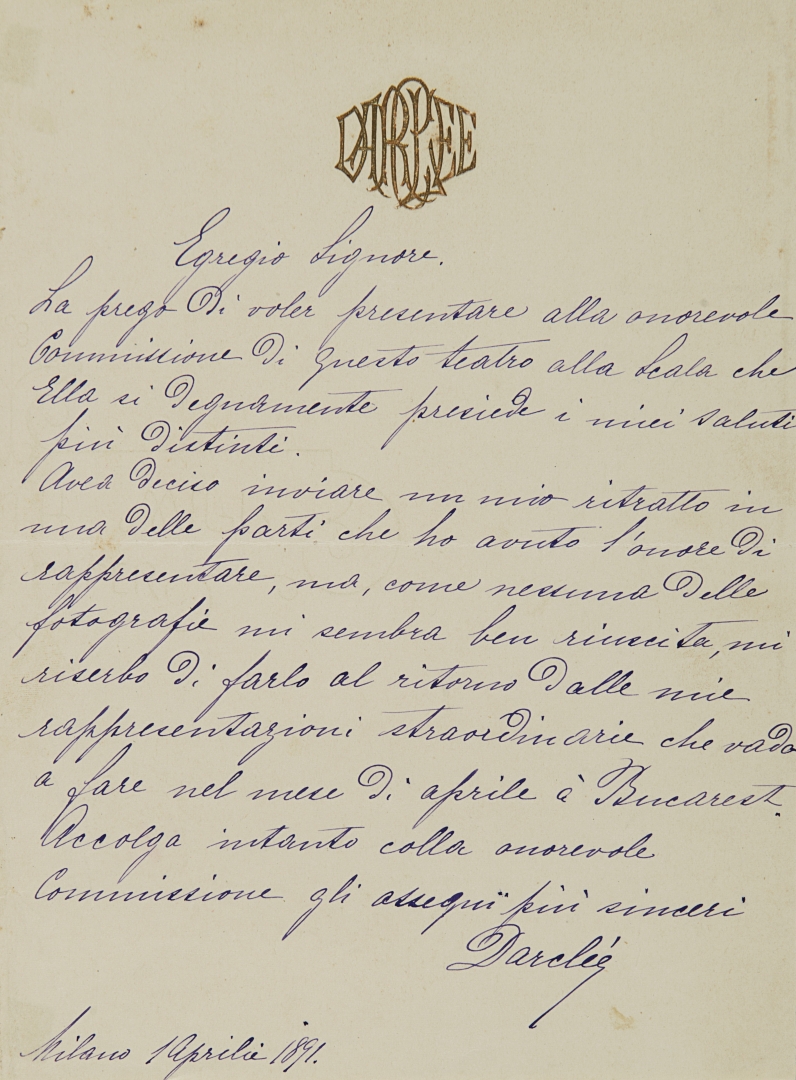 DARCLEE
Egregio Signore.
La prego di voler presentare alla onorevole
Commissione di questo teatro alla Scala che
Ella si degnamente presiede i miei saluti
più distinti.
Avea deciso inviare un mio ritratto in
una delle parti che ho avuto l'onore di
rappresentare, ma, come nessuna delle
fotografie mi sembra ben riuscita, mi
riserbo di farlo al ritorno dalle mie
rappresentazioni straordinarie che vado
a fare nel mese di aprile à Bucarest.
Accolga intanto colla onorevole
Commissione gli ossequii più sinceri
Darclée
Milano 1 Aprilie 1891.